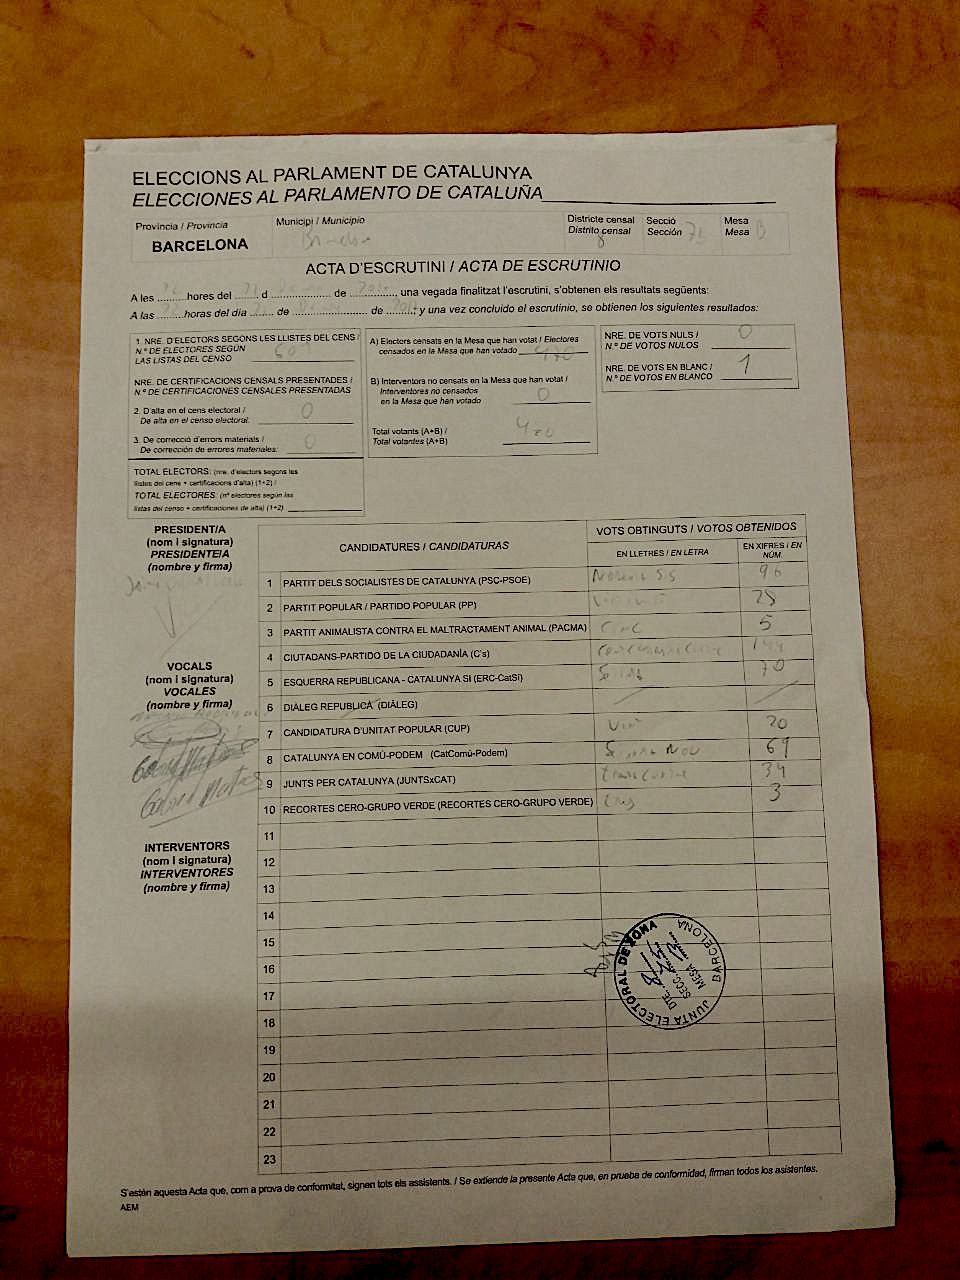 ELECCIONS AL PARLAMENT DE CATALUNYA
ELECCIONES AL PARLAMENTO DE CATALUÑA
Província / Provincia
BARCELONA
Municipi / Municipio
Districte censal
Distrito censal
8
Secció
Sección
Mesa
Mesa B
ACTA D'ESCRUTINI / ACTA DE ESCRUTINIO
A les ........ hores del ........ d .................... de ............, una vegada finalitzat l'escrutini, s'obtenen els resultats següents:
A las ........ horas del día ........ de .................... de ............ y una vez concluido el escrutinio, se obtienen los siguientes resultados:
1. NRE. D'ELECTORS SEGONS LES LLISTES DEL CENS /
N.º DE ELECTORES SEGÚN
LAS LISTAS DEL CENSO
NRE. DE CERTIFICACIONS CENSALS PRESENTADES /
N.º DE CERTIFICACIONES CENSALES PRESENTADAS
2. D'alta en el cens electoral /
De alta en el censo electoral: 0
3. De correcció d'errors materials /
De corrección de errores materiales: 0
TOTAL ELECTORS: (nre. d'electors segons les
llistes del cens + certificacions d'alta) (1+2) /
TOTAL ELECTORES: (nº electores según las
listas del censo + certificaciones de alta) (1+2)
A) Electors censats en la Mesa que han votat / Electores
censados en la Mesa que han votado 470
B) Interventors no censats en la Mesa que han votat /
Interventores no censados
en la Mesa que han votado 0
Total votants (A+B) /
Total votantes (A+B) 470
NRE. DE VOTS NULS /
N.º DE VOTOS NULOS 0
NRE. DE VOTS EN BLANC /
N.º DE VOTOS EN BLANCO 1
PRESIDENT/A
(nom i signatura)
PRESIDENTE/A
(nombre y firma)
VOCALS
(nom i signatura)
VOCALES
(nombre y firma)
INTERVENTORS
(nom i signatura)
INTERVENTORES
(nombre y firma)
CANDIDATURES / CANDIDATURAS
VOTS OBTINGUTS / VOTOS OBTENIDOS
EN LLETRES / EN LETRA
EN XIFRES / EN
NÚM.
1 PARTIT DELS SOCIALISTES DE CATALUNYA (PSC-PSOE) 96
2 PARTIT POPULAR / PARTIDO POPULAR (PP) 28
3 PARTIT ANIMALISTA CONTRA EL MALTRACTAMENT ANIMAL (PACMA) 5
4 CIUTADANS-PARTIDO DE LA CIUDADANÍA (C's) 144
5 ESQUERRA REPUBLICANA - CATALUNYA SI (ERC-CatSí) 70
6 DIÀLEG REPUBLICÀ (DIÀLEG)
7 CANDIDATURA D'UNITAT POPULAR (CUP) 20
8 CATALUNYA EN COMÚ-PODEM (CatComú-Podem) 69
9 JUNTS PER CATALUNYA (JUNTSxCAT) 34
10 RECORTES CERO-GRUPO VERDE (RECORTES CERO-GRUPO VERDE) 3
11
12
13
14
15
16
17
18
19
20
21
22
23
JUNTA ELECTORAL DE ZONA
BARCELONA
DTE.
SECC.
MESA
S'estén aquesta Acta que, com a prova de conformitat, signen tots els assistents. / Se extiende la presente Acta que, en prueba de conformidad, firman todos los asistentes.
AEM